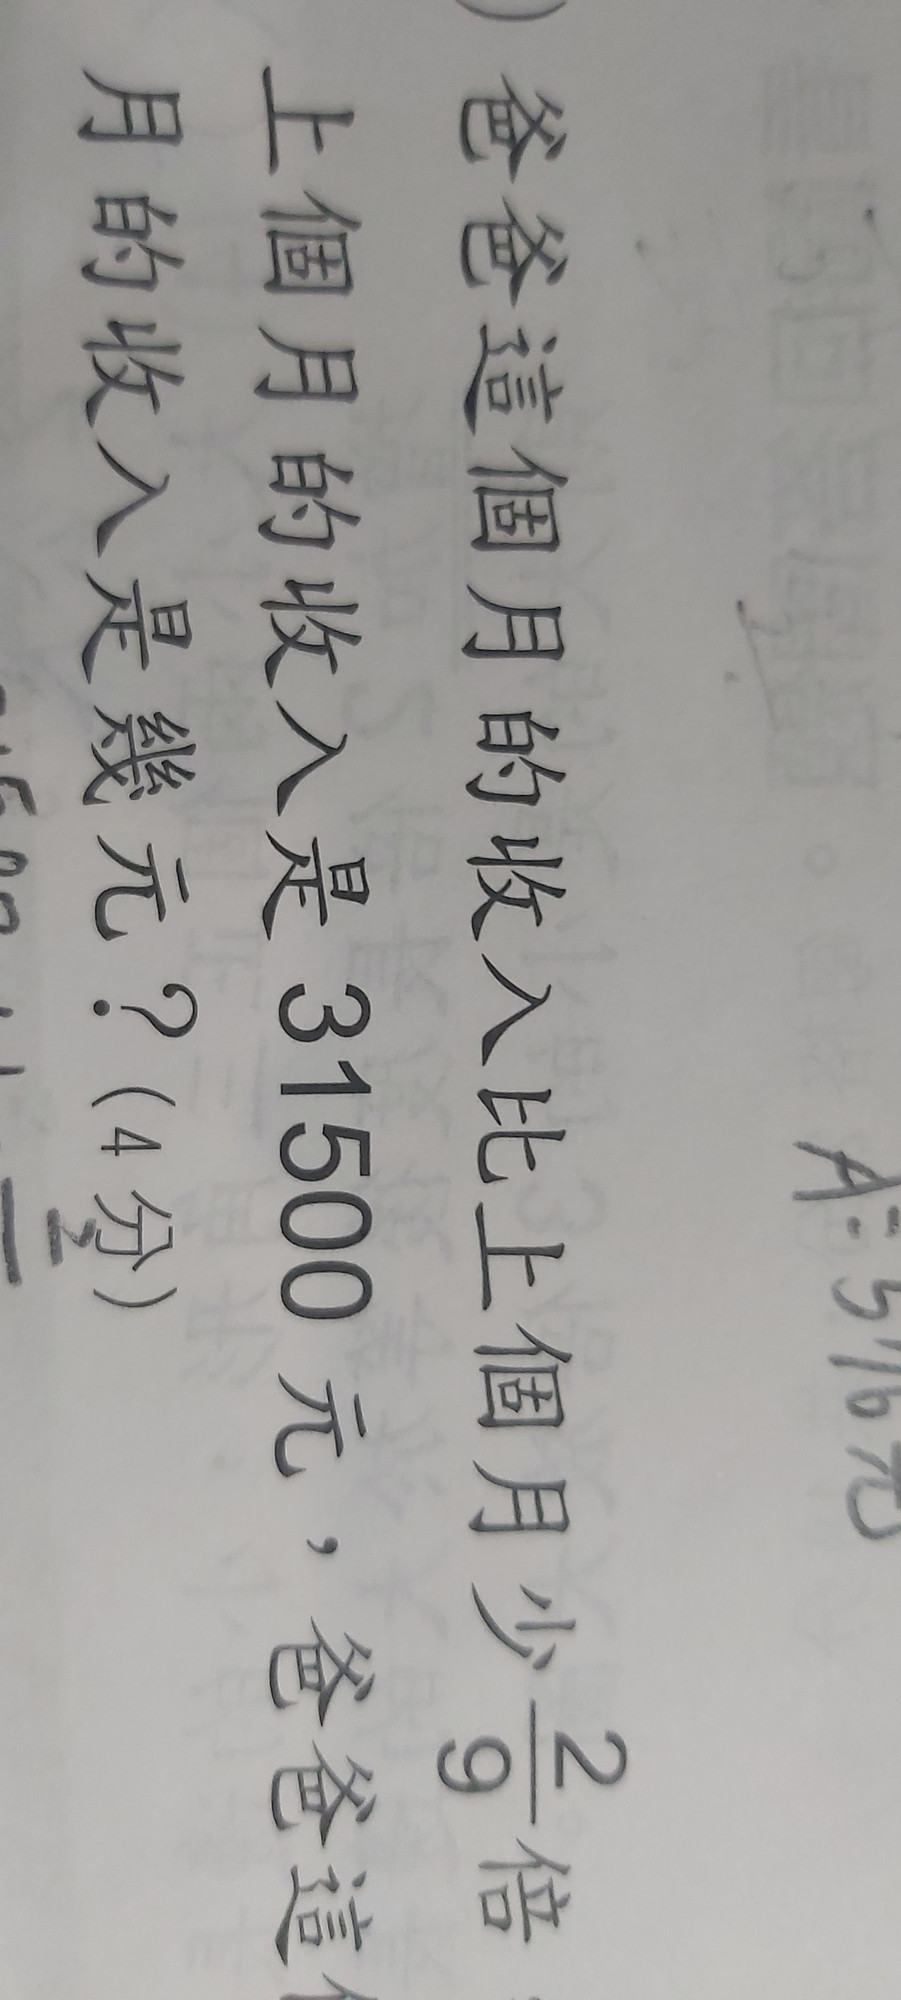 A：516元
爸爸這個月的收入比上個月少2/9倍
上個月的收入是31500元，爸爸這
月的收入是幾元？(4分)